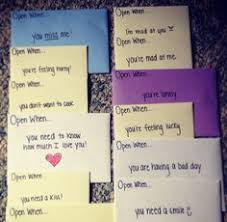 Open When...
you miss me!
Open When...
you're feeling horny!
Open When...
you don't want to cook
Open When...
you need to know
how much I love you!
Open When...
you need a kiss!
Open When...
Open When...
I'm mad at you
Open When...
you're mad at me
Open When...
you're lonely
Open When...
you're feeling lucky
Open When...
you are having a bad day
Open When...
you need a smile